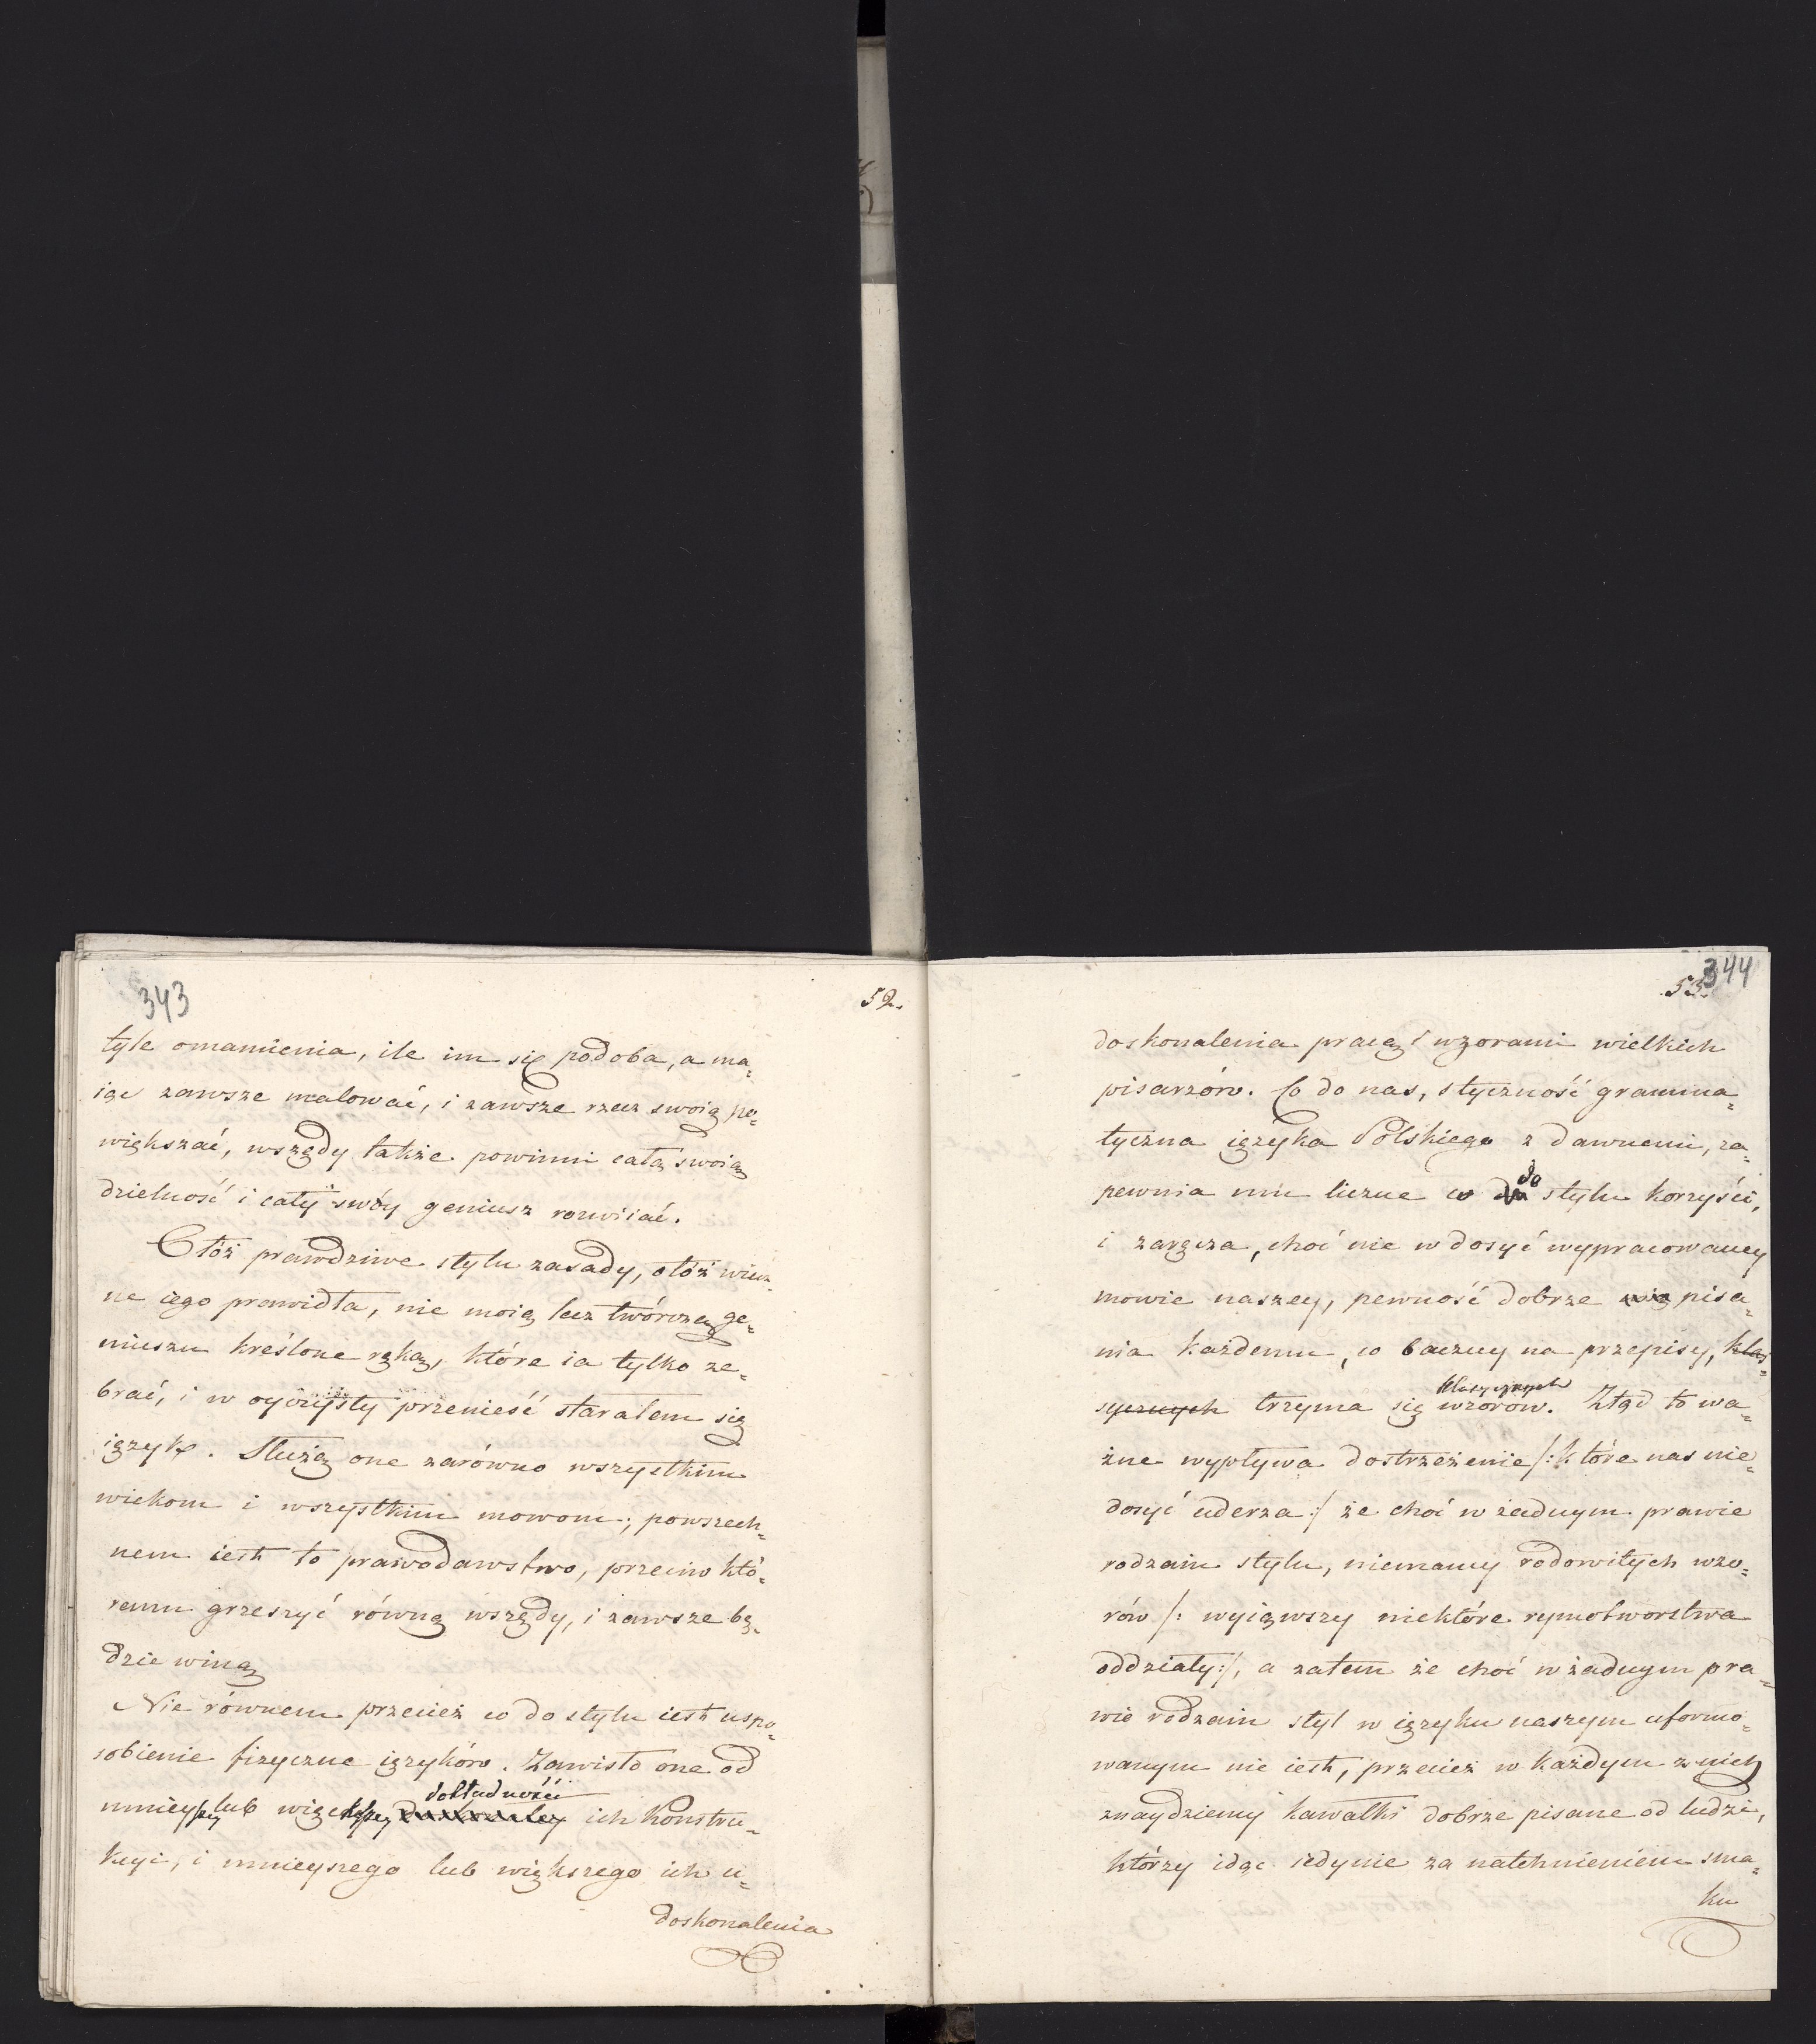 343
52.
tyle omamienia, ile im się podoba, a ma=
iąc zawsze malować, i zawsze rzecz swoią po=
większać, wszędy także powinni całą swoią
dzielność i cały swóy geniusz rozwiiać.
Otóż prawdziwe stylu zasady, otóż wiecz=
ne iego prawidła, nie moią lecz twórczą ge=
niuszu kreślone ręką, które ia tylko ze=
brać, i w oyczysty przenieść starałem się
ięzyk. Służą one zarówno wszystkim
wiekom i wszystkim mowom; powszech=
nem iest to prawodawstwo, przeciw któ=
remu grzeszyć równą wszędy, i zawsze bę=
dzie winą
Nie równem przecież co do stylu iest uspo=
sobienie fizyczne ięzyków. Zawisło one od
dokładności
mnieyszey lub większey ich konstru=
kcyi, i mnieyszego lub większego ich u=
doskonalenia
344
53.
doskonalenia pracą i wzorami wielkich
pisarzów. Co do nas, styczność gramma=
tyczna ięzyka Polskiego z dawnemi, za=
do
pewnia mu liczne co stylu korzyści,
i zaręcza, choć nie w dosyć wypracowaney
mowie naszey, pewność dobrze pisa=
nia każdemu, co baczny na przepisy, klas=
klassycznych
sycznych trzyma się wzorów. Ztąd to wa=
żne wypływa dostrzeżenie /: które nas nie=
dosyć uderza :/ że choć w żadnym prawie
rodzaiu stylu, niemamy rodowitych wzo=
rów /: wyiąwszy niektóre rymotworstwa
oddziały :/, a zatem że choć w żadnym pra=
wie rodzaiu styl w ięzyku naszym uformo=
wanym nie iest, przecież w każdym z nich
znaydziemy kawałki dobrze pisane od ludzi,
którzy idąc iedynie za natchnieniem sma=
ku